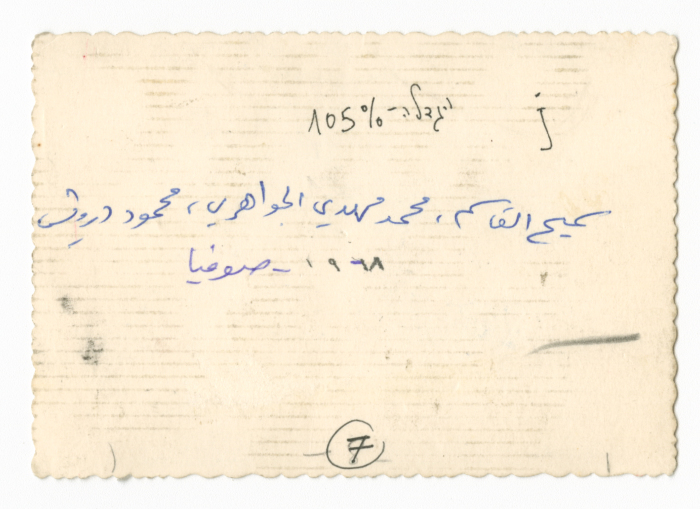 הגדלה - 105%
سميح القاسم، محمد مهدي الجواهري، محمود درويش
١٩٦٨ - صوفيا
7